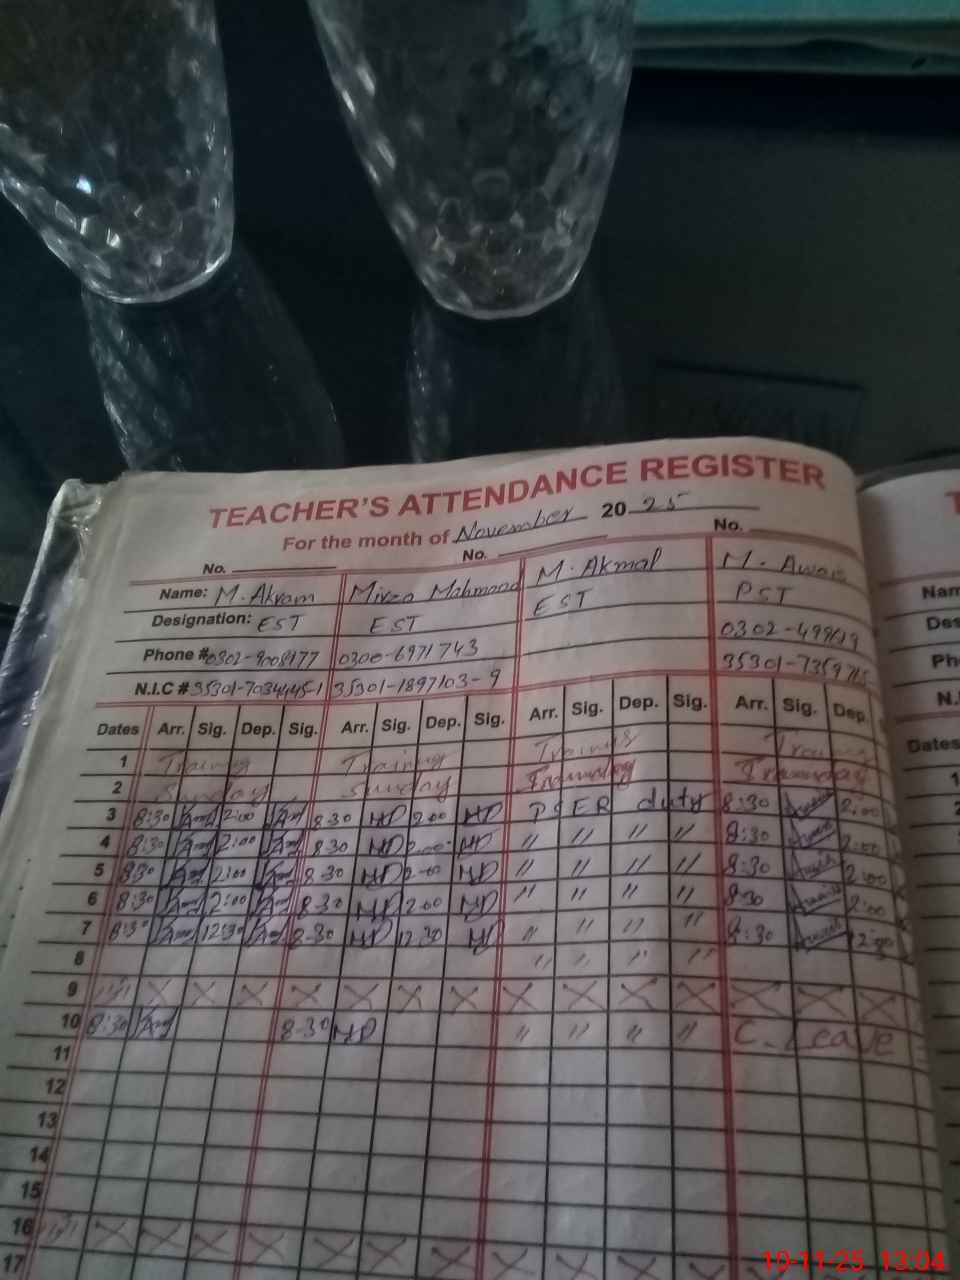 TEACHER'S ATTENDANCE REGISTER
For the month of November 2025
No. No. No.
Name: M. Akram Mirza Mahmood M. Akmal M. Awais
Designation: EST EST EST PST
Phone # 0302-9008977 0300-6971743 0302-499
N.I.C # 35301-7034445-1 35301-1897103-9 35301-73597
Dates Arr. Sig. Dep. Sig. Arr. Sig. Dep. Sig. Arr. Sig. Dep. Sig. Arr. Sig. Dep.
1 Training Training Training Training
2 Sunday Sunday
3 8:30 2:00 8 30 2 00 PSER duty 8:30 2:00
4 8:30 2:00 8 30 2-00 " " " " 8:30 2:00
5 8:30 2:00 8-30 2-00 " " " " 8:30 2:00
6 8:30 2:00 8-30 2-00 " " " " 8:30 2:00
7 8:30 12:30 8-30 12 30 " " " " 8:30 12:30
8 " " " "
9
10 8:30 8-30 " " " " C. Leave
11
12
13
14
15
16
17
T
Nam
Des
Ph
N.
Dates
1
10-11-25 13:04